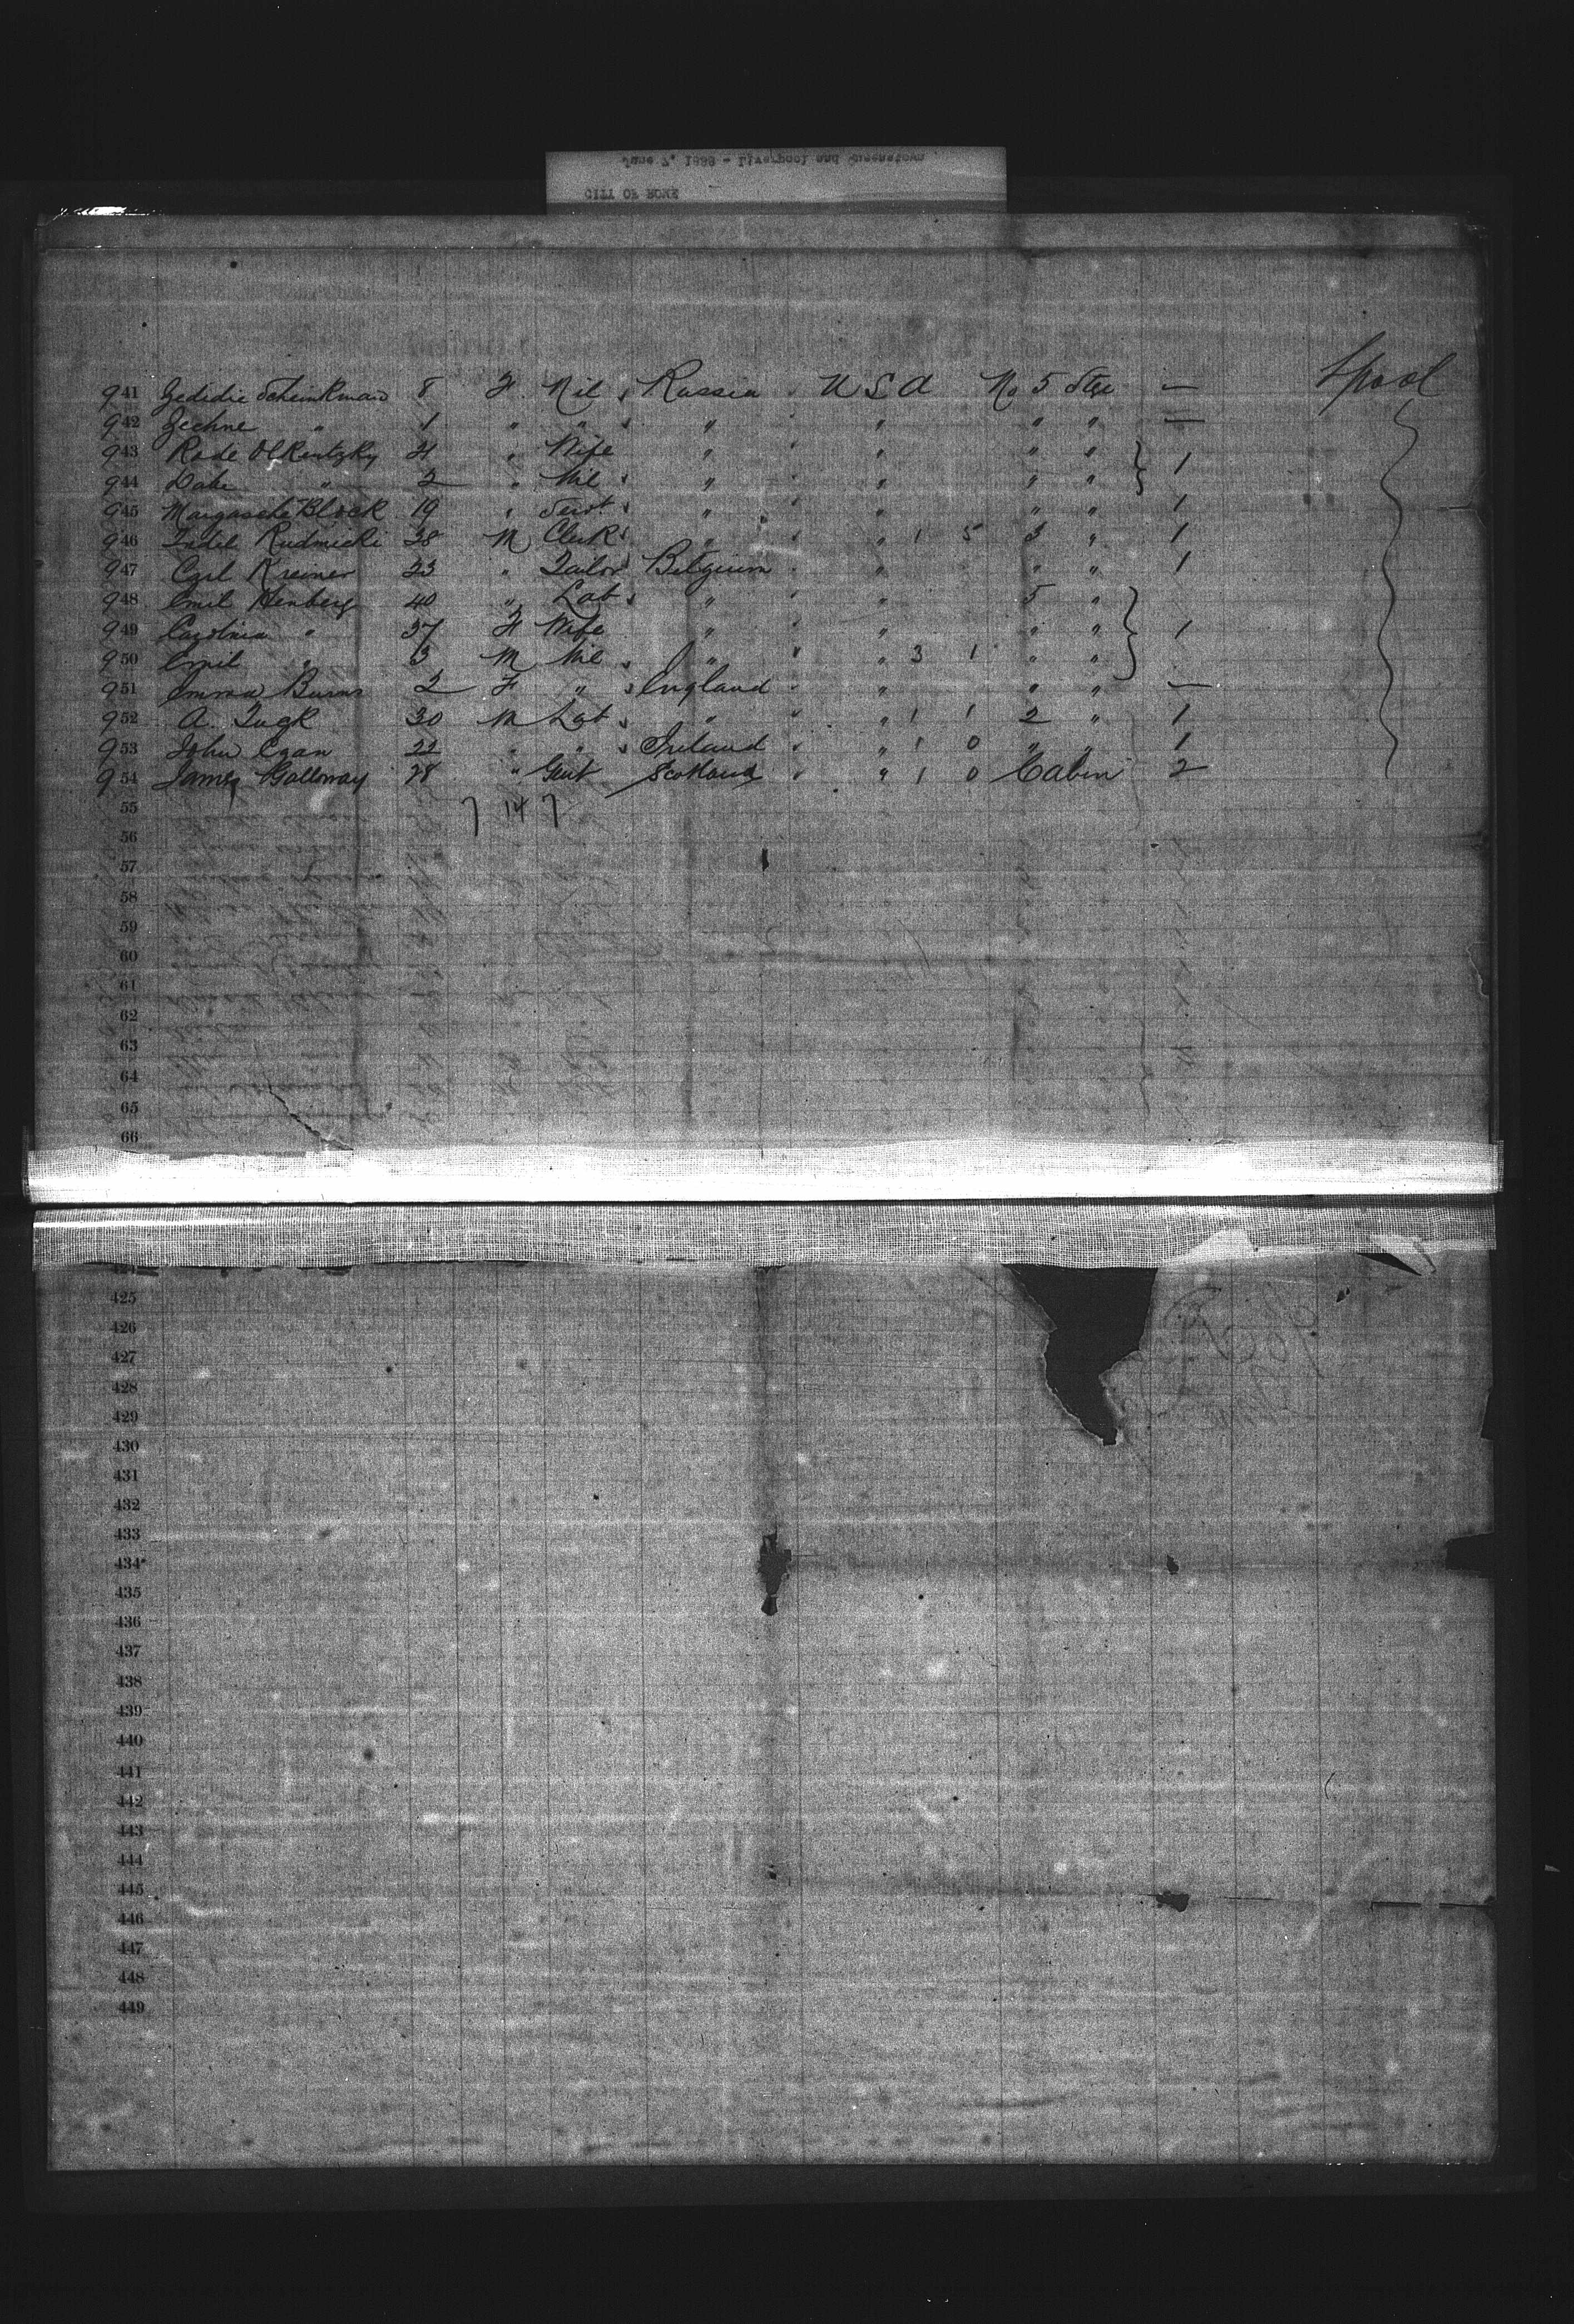 June 7, 1888 - Liverpool and Queenstown
CITY OF ROME
L'pool
941 Zedidie Scheinkman 8 F. Nil Russia U S A No 5 Stge —
942 Zechne " 1 " " " " " " —
943 Rode Olkentzky 21 " Wife " " " " 1
944 Dake " 2 " Nil " " " "
945 Margasche Block 19 " Servt " " " " 1
946 Zodel Rudnicki 28 M Clerk " " 1 5 3 " 1
947 Carl Kreiner 23 " Tailor Belgium " " " 1
948 Emil Henberg 40 " Lab " " 5 "
949 Carolina " 37 F Wife " " " " 1
950 Emil " 3 M Nil " " 3 1 " "
951 Emma Burns 2 F " England " " " —
952 A. Tugk 30 M Lab " " 1 1 2 " 1
953 John Egan 22 " " Ireland " 1 0 " " 1
954 James Galloway 28 " Gent Scotland " 1 0 Cabin 2
55 7 14 7
56
57
58
59
60
61
62
63
64
65
66
425
426
427
428
429
430
431
432
433
434
435
436
437
438
439
440
441
442
443
444
445
446
447
448
449